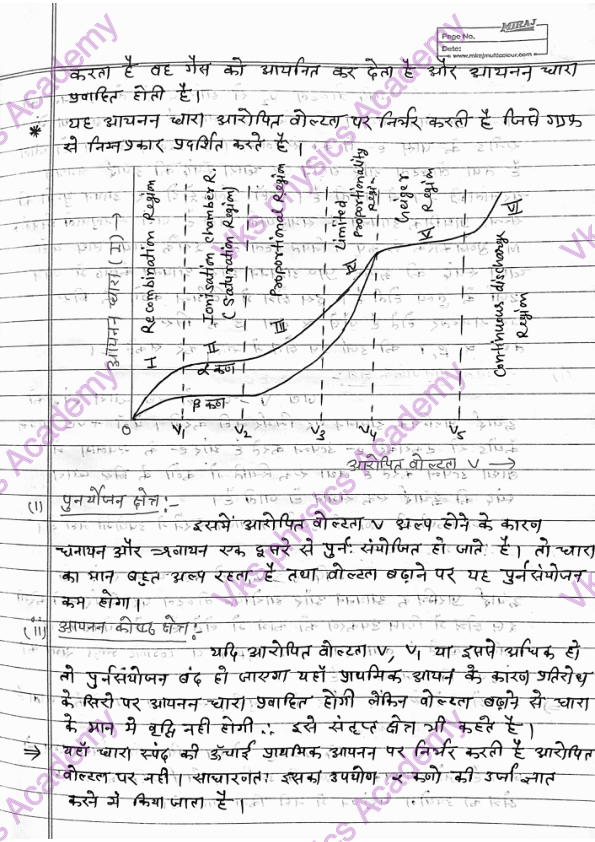 MIRAJ
Page No.
Date:
www.mirajmulticolour.com
करता है वह गैस को आयनित कर देता है और आयनन धारा
प्रवाहित होती है।
* यह आयनन धारा आरोपित वोल्टता पर निर्भर करती है जिसे ग्राफ
से निम्नप्रकार प्रदर्शित करते है।
आयनन धारा (I) →
Recombination Region
I
Ionisation chamber R.
(Saturation Region)
II
Proportional Region
III
Limited
Proportionality
Region
IV
Geiger
Region
V
Continuous discharge
Region
VI
α कण
β कण
O V1 V2 V3 V4 V5
आरोपित वोल्टता V →
(I) पुनर्योजन क्षेत्र:-
इसमें आरोपित वोल्टता V अल्प होने के कारण
धनायन और ऋणायन एक दूसरे से पुर्नः संयोजित हो जाते है। तो धारा
का मान बहुत अल्प रहता है तथा वोल्टता बढ़ाने पर यह पुर्नसंयोजन
कम होगा।
(II) आयनन कोष्ठ क्षेत्र:-
यदि आरोपित वोल्टता V, V1 या इससे अधिक हो
तो पुर्नसंयोजन बंद हो जाएगा यहाँ प्राथमिक आयनं के कारण प्रतिरोध
के सिरो पर आयनन धारा प्रवाहित होगी लेकिन वोल्टता बढ़ाने से धारा
के मान मे वृद्धि नही होगी ∴ इसे संतृप्त क्षेत्र भी कहते है।
⇒ यहाँ धारा स्पंद की ऊँचाई प्राथमिक आयनन पर निर्भर करती है आरोपित
वोल्टता पर नही। साधारणतः इसका उपयोग α कणो की उर्जा ज्ञात
करने मे किया जाता है।
Vks physics Academy